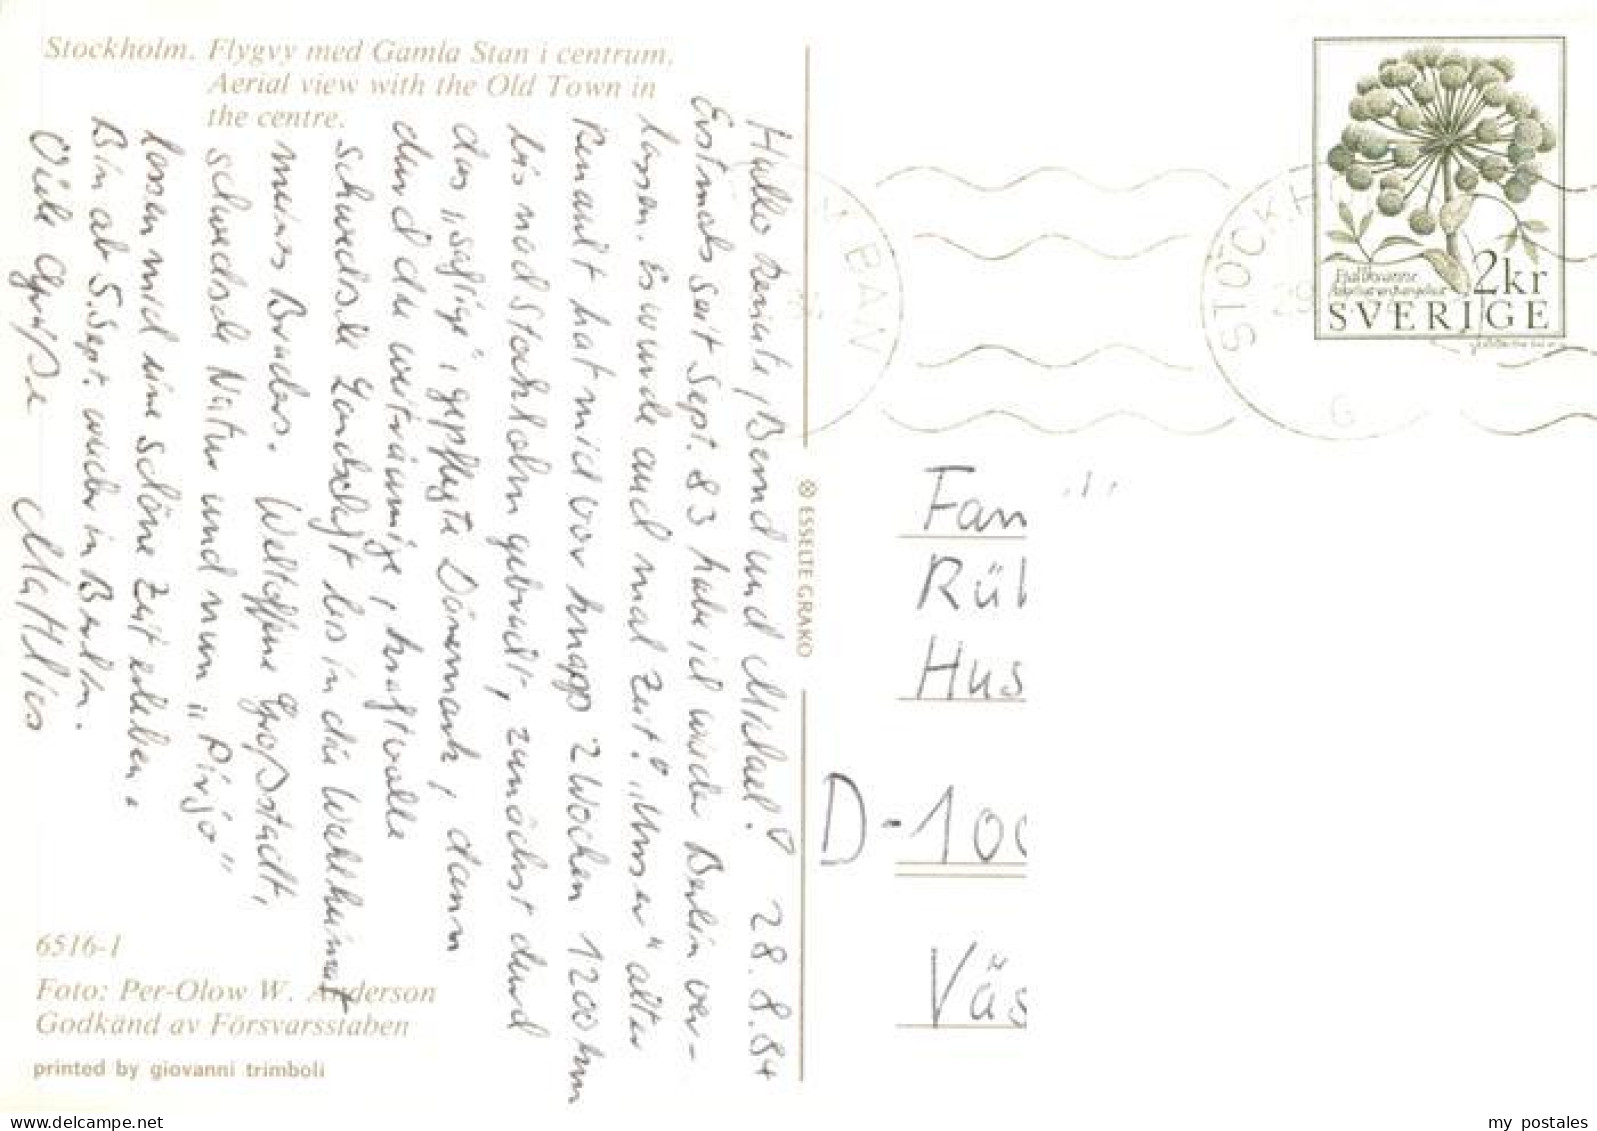 Stockholm. Flygvy med Gamla Stan i centrum.
Aerial view with the Old Town in
the centre.
Hallo Renate, Bernd und Michael! 28.8.84
Erstmals seit Sept. 83 habe ich wieder Berlin ver-
lassen. Es wurde auch mal Zeit! "Unser" alter
Renault hat mich vor knapp 2 Wochen 1200 km
bis nach Stockholm gebracht, zunächst durch
das „saftige", gepflegte Dänemark, dann
durch die weiträumige, kraftvolle
schwedische Landschaft bis in die Wahlheimat
meines Bruders. Weltoffene Großstadt,
schwedische Natur und nun „Pirjo"
lassen mich eine schöne Zeit erleben.
Bin ab 5. Sept. wieder in Berlin.
Viele Grüße Matthias
6516-1
Foto: Per-Olow W. Anderson
Godkänd av Försvarsstaben
printed by giovanni trimboli
ESSELTE GRAKO
BAN
STOCKH
G
Fjällkvanne
2kr
SVERIGE
Fam
Rül
Hus
D-100
Väs
www.delcampe.net
my_postales